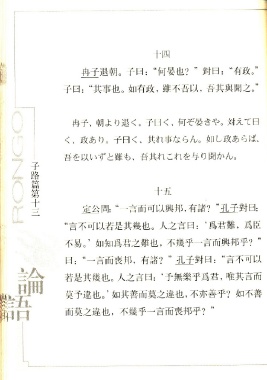 十四
冉子退朝。子曰：“何晏也？”對曰：“有政。”
子曰：“其事也。如有政，雖不吾以，吾其與聞之。”
冉子、朝より退く。子曰く、何ぞ晏きや。対えて曰
く、政あり。子曰く、其れ事ならん。如し政あらば、
吾を以いずと雖も、吾其れこれを与り聞かん。
十五
定公問：“一言而可以興邦，有諸？”孔子對曰：
“言不可以若是其幾也。人之言曰：‘爲君難，爲臣
不易。’如知爲君之難也，不幾乎一言而興邦乎？”
曰：“一言而喪邦，有諸？”孔子對曰：“言不可以
若是其幾也。人之言曰：‘予無樂乎爲君，唯其言而
莫予違也。’如其善而莫之違也，不亦善乎？如不善
而莫之違也，不幾乎一言而喪邦乎？”
RONGO
子路篇第十三
論語